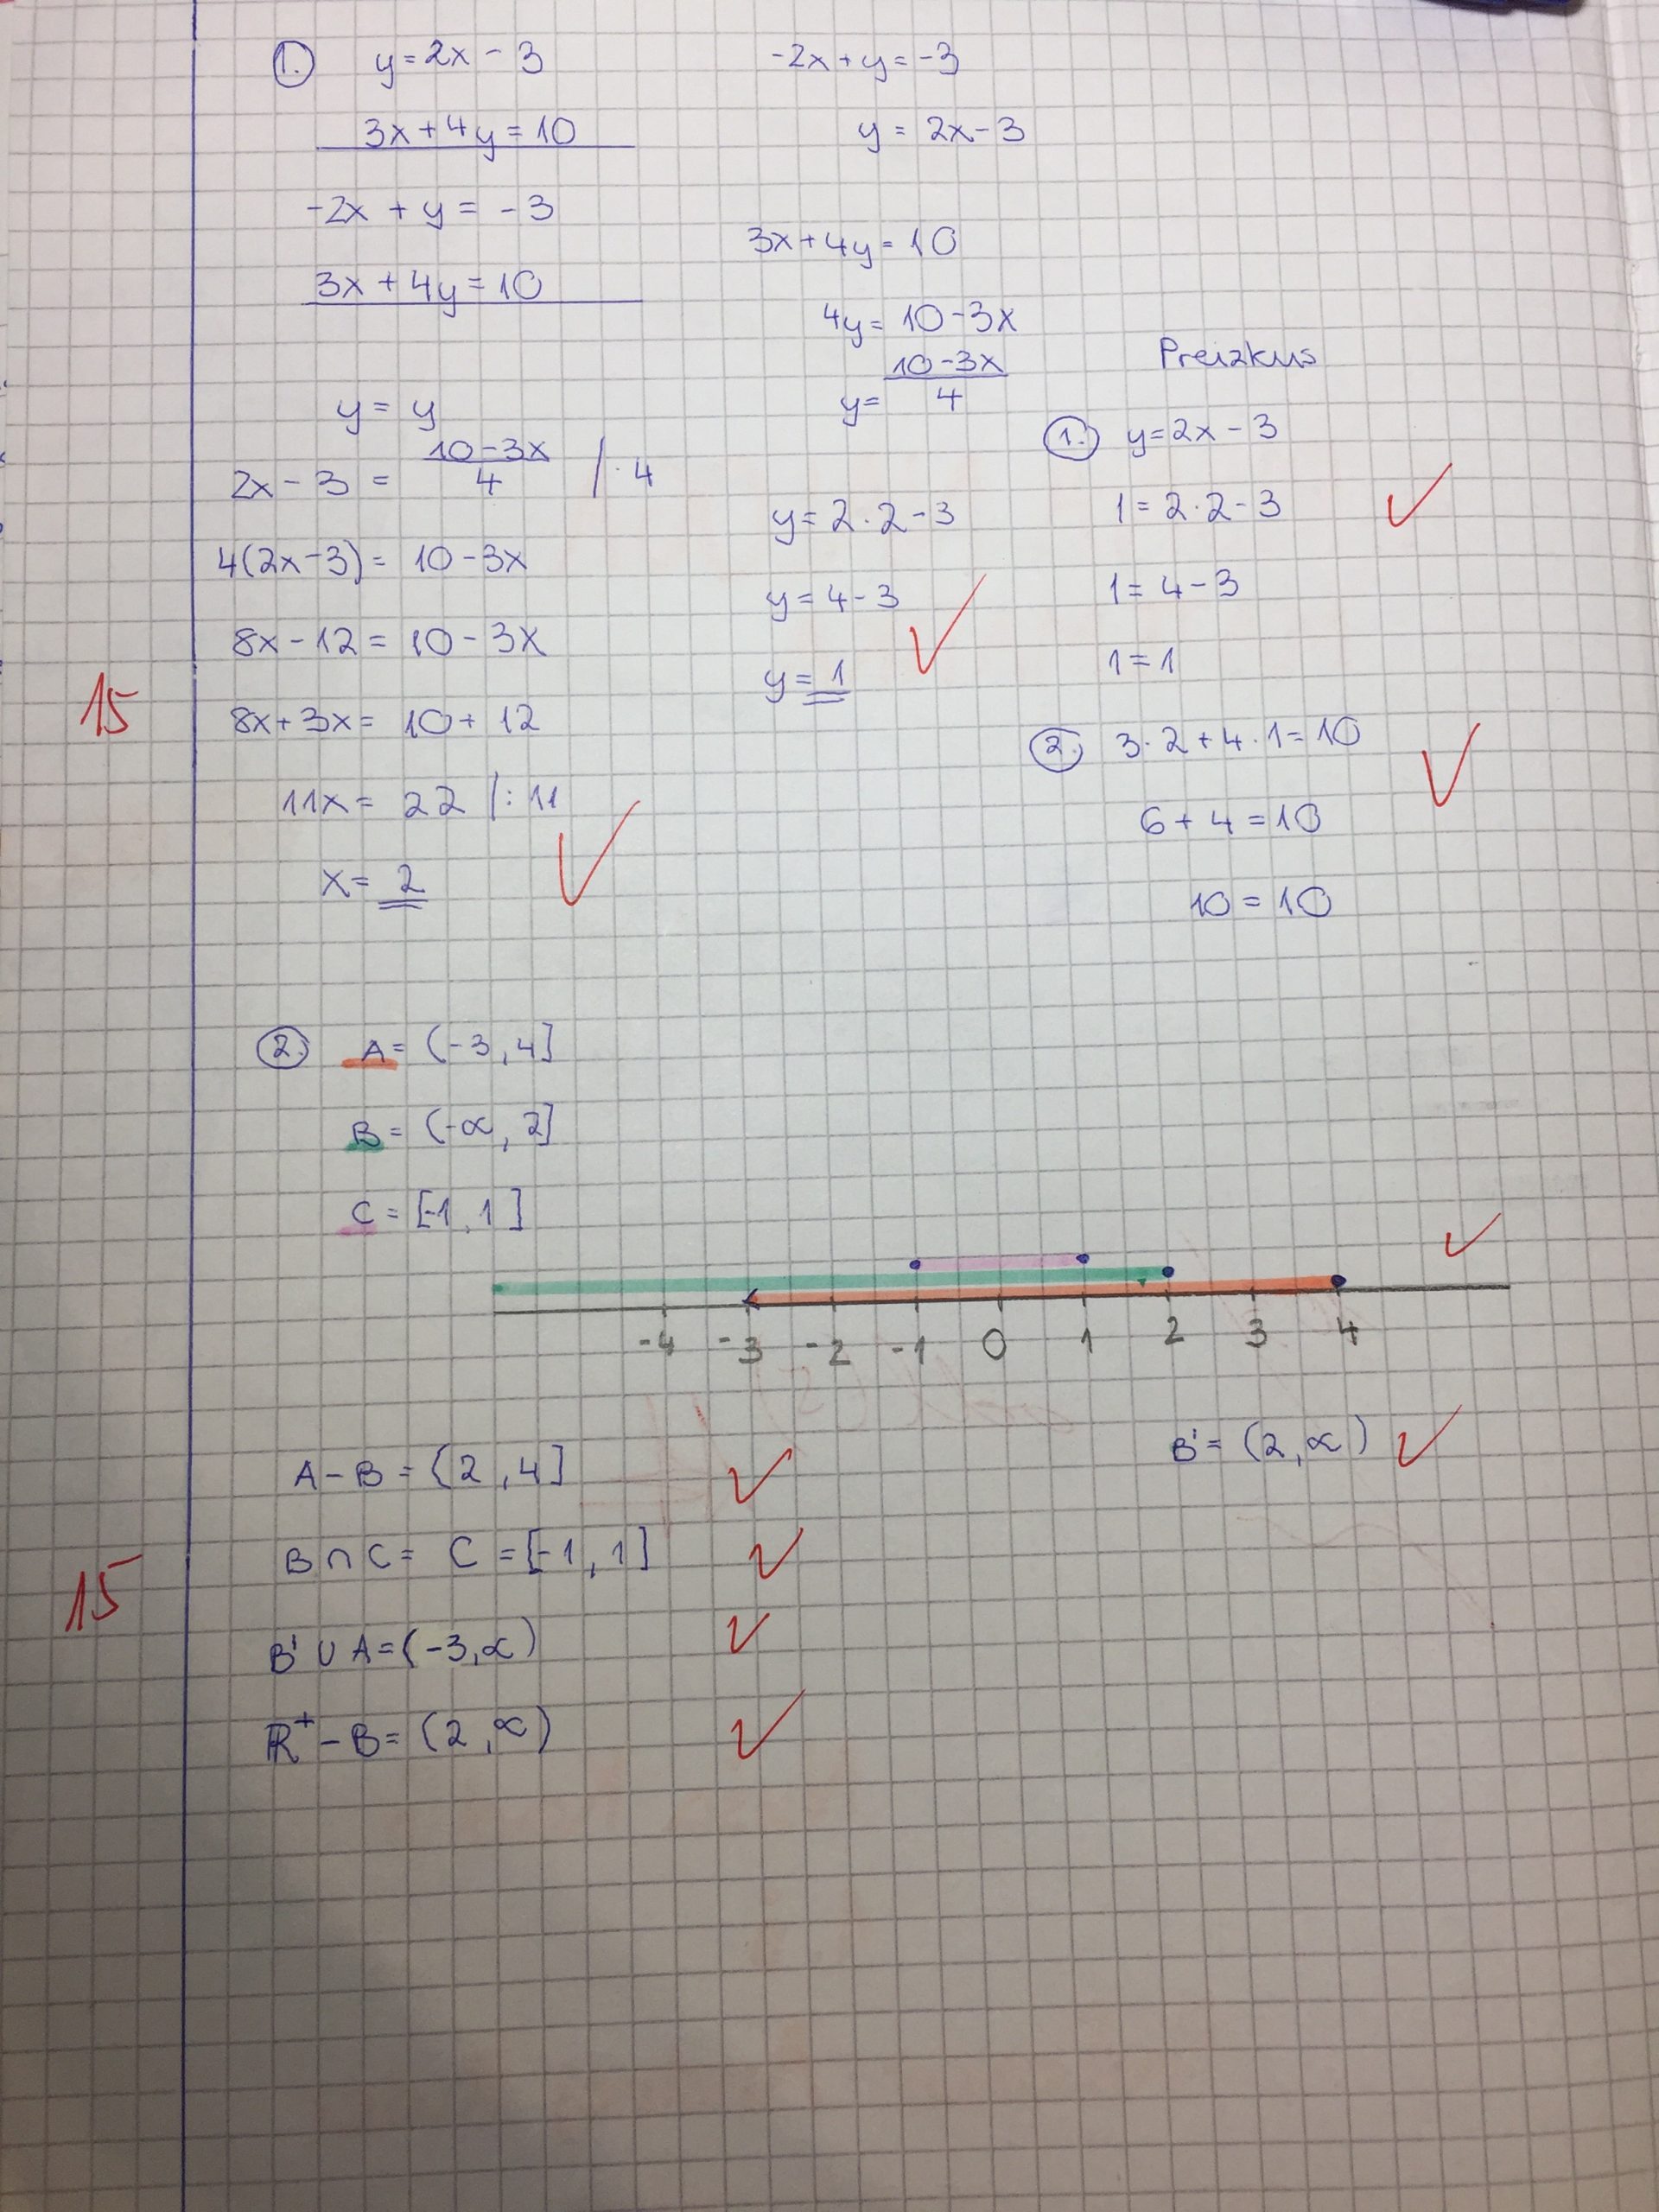 1. y=2x-3
3x+4y=10
-2x+y=-3
3x+4y=10
y=y
2x-3=\frac{10-3x}{4} /·4
4(2x-3)=10-3x
8x-12=10-3x
15
8x+3x=10+12
11x=22 /:11
x=2
-2x+y=-3
y=2x-3
3x+4y=10
4y=10-3x
y=\frac{10-3x}{4}
y=2·2-3
y=4-3
y=1
Preizkus
1. y=2x-3
1=2·2-3
1=4-3
1=1
2. 3·2+4·1=10
6+4=10
10=10
2. A=(-3,4]
B=(-∞,2]
C=[-1,1]
-4 -3 -2 -1 0 1 2 3 4
B'=(2,∞)
A-B=(2,4]
B∩C=C=[-1,1]
15
B'∪A=(-3,∞)
ℝ⁺-B=(2,∞)